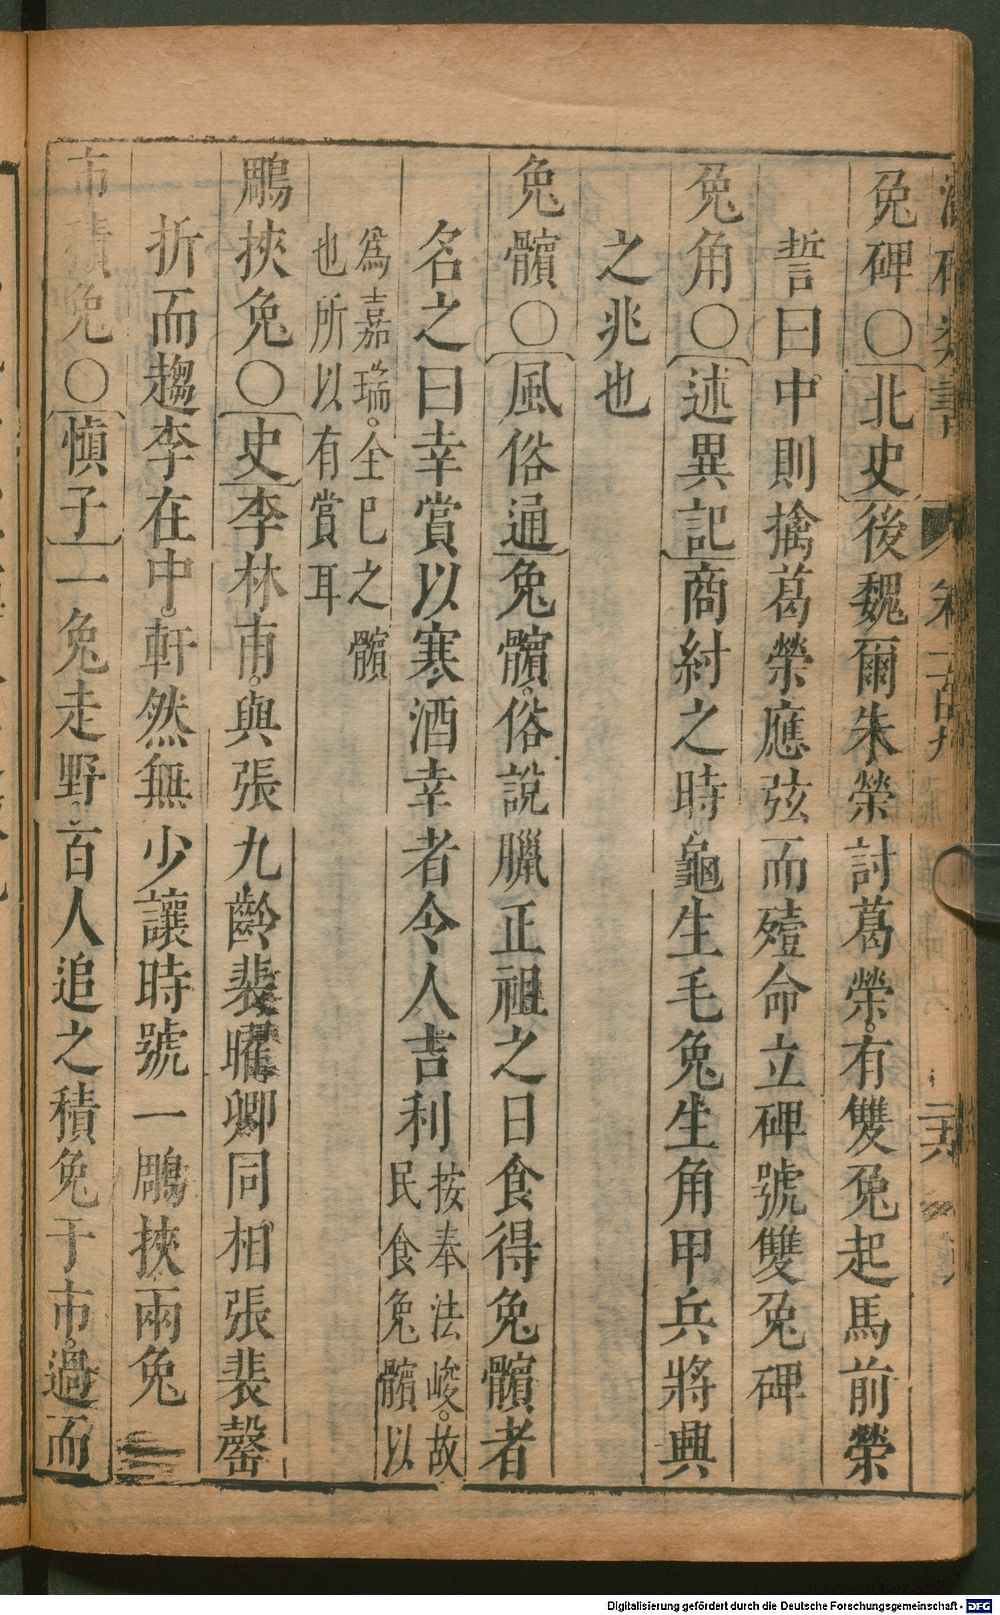 兔碑〇北史後魏爾朱榮討葛榮。有雙兔起馬前榮
誓曰中則擒葛榮應弦而殪命立碑號雙兔碑
兔角〇述異記商紂之時龜生毛兔生角甲兵將興
之兆也
兔髕〇風俗通兔髕。俗說臘正祖之日食得兔髕者
名之曰幸賞以寒酒幸者令人吉利按奉法峻。故
民食兔髕以
為嘉瑞。全巳之髕
也所以有賞耳
鵰挾兔〇史李林甫。與張九齡裴曜卿同相張裴罄
折而趨李在中。軒然無少讓時號一鵰挾兩兔
市積兔〇慎子一兔走野百人追之積兔于市。過而
Digitalisierung gefördert durch die Deutsche Forschungsgemeinschaft - DFG